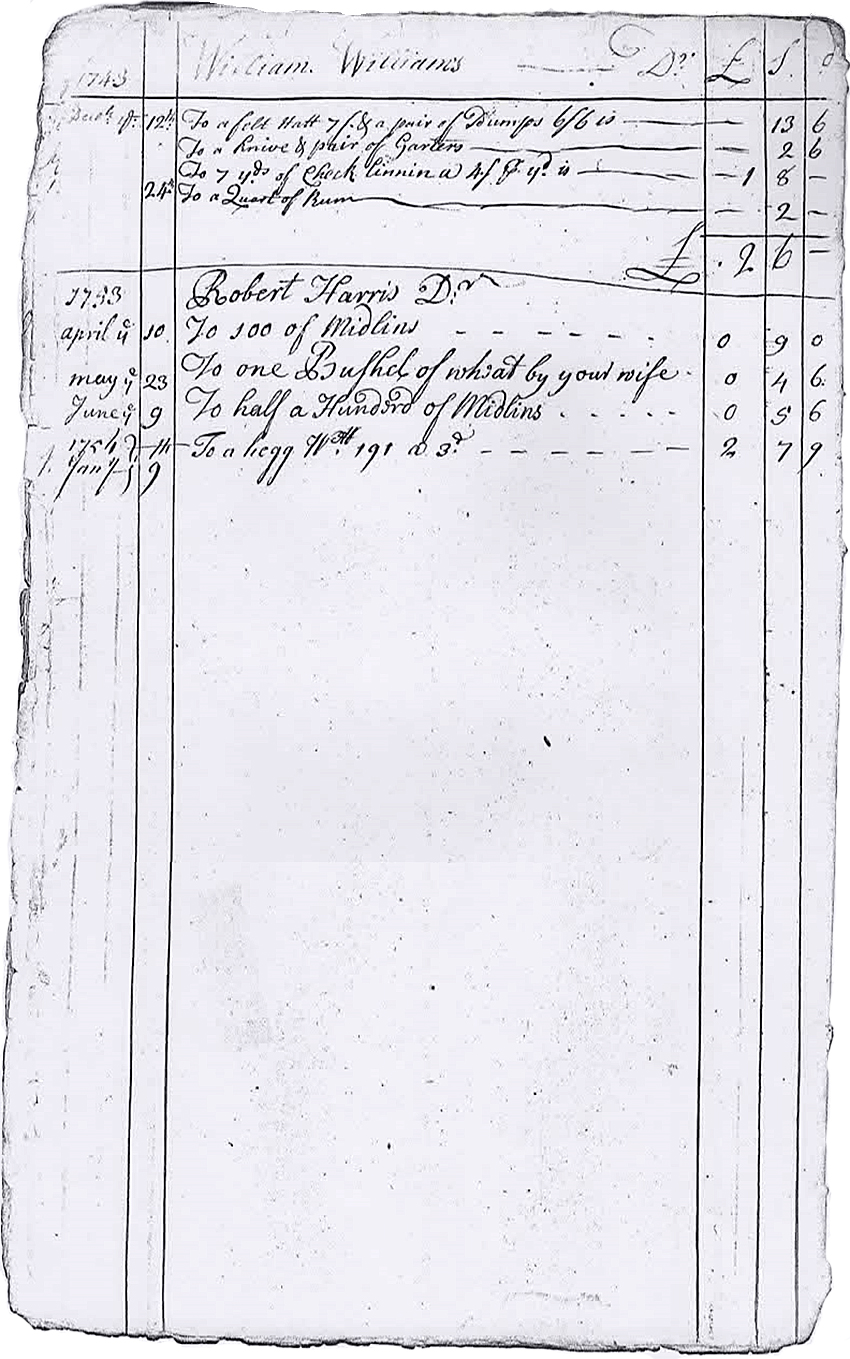 1743 William Williams Dr £ s d
Decbr ye 12th To a felt Hatt 7/ & a pair of Pumps 6/6 is — 13 6
To a Knive & pair of Garters — 2 6
To 7 yds of Check linnin a 4/ P yd is — 1 8 –
24th To a Quart of Rum — 2 –
£ . 2 6 –
1753 Robert Harris Dr
april ye 10 To 100 of Midlins 0 9 0
may ye 23 To one Bushel of wheat by your wife 0 4 6
June ye 9 To half a Hunderd of Midlins 0 5 6
1754 14 To a hogg Wtt 191 a 3d 2 7 9
Jany 9